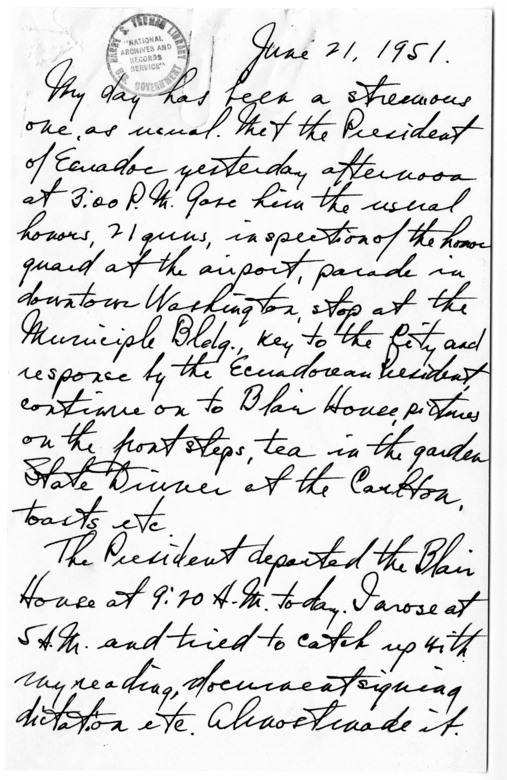 HARRY S. TRUMAN LIBRARY
"NATIONAL
ARCHIVES AND
RECORDS
SERVICE"
U.S. GOVERNMENT
June 21, 1951.
My day has been a strenuous
one, as usual. Met the President
of Ecuador yesterday afternoon
at 3:00 P.M. Gave him the usual
honors, 21 guns, inspection of the honor
guard at the airport, parade in
downtown Washington, stop at the
Municiple Bldg., key to the City and
response by the Ecuadorean President,
continue on to Blair House, pictures
on the front steps, tea in the garden
State Dinner at the Carlton,
toasts etc.
The President departed the Blair
House at 9:20 A.M. today. I arose at
5 A.M. and tried to catch up with
my reading, document signing
dictation etc. Almost made it.